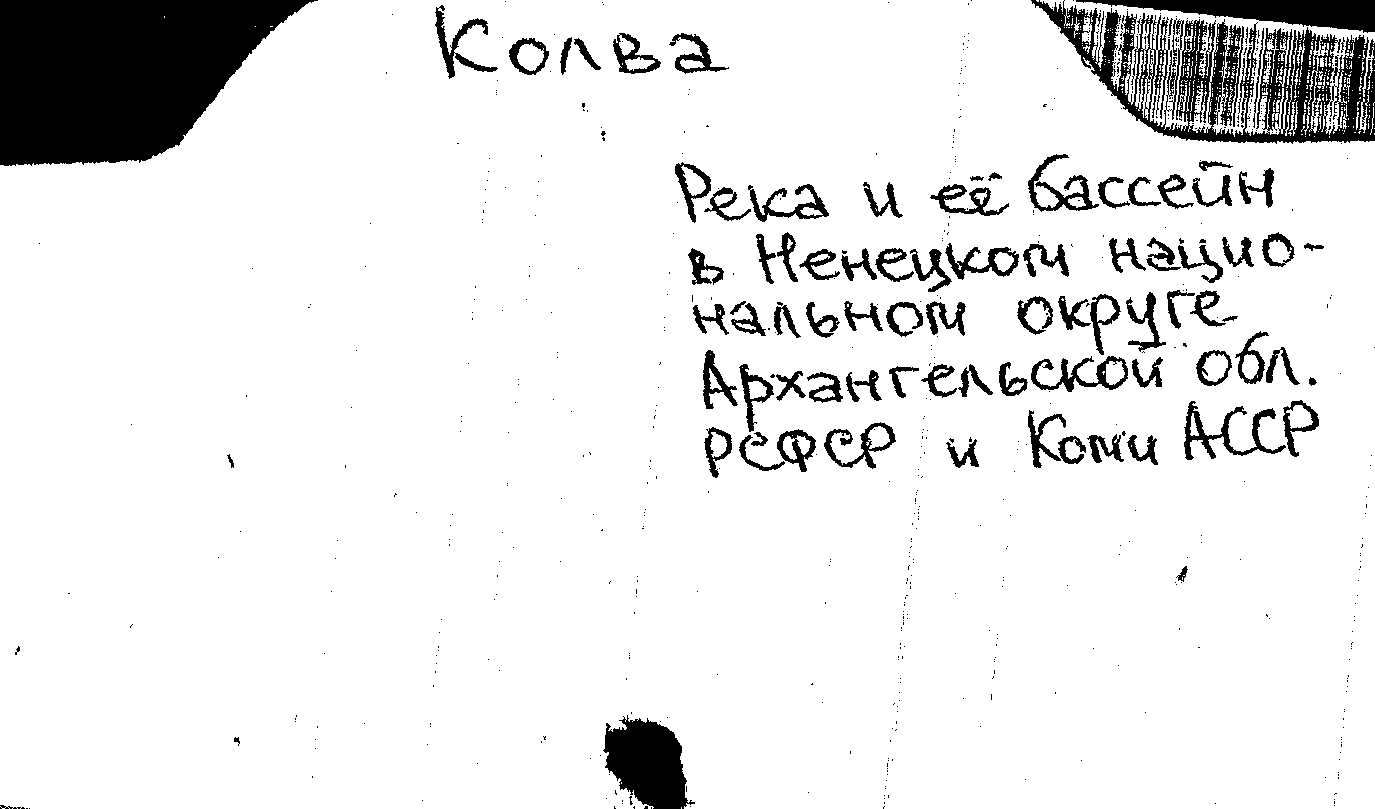 Колва
Река и её бассейн
в Ненецком нацио-
нальном округе
Архангельской обл.
РСФСР и Коми АССР